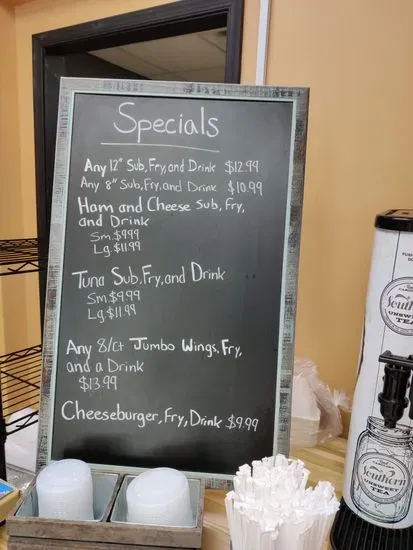 Specials
Any 12" Sub, Fry, and Drink $12.99
Any 8" Sub, Fry, and Drink $10.99
Ham and Cheese Sub, Fry,
and Drink
Sm. $9.99
Lg. $11.99
Tuna Sub, Fry, and Drink
Sm $9.99
Lg. $11.99
Any 8/ct Jumbo Wings, Fry,
and a Drink
$13.99
Cheeseburger, Fry, Drink $9.99
South
UNSWEET
TEA
Southern
UNSWEET TEA